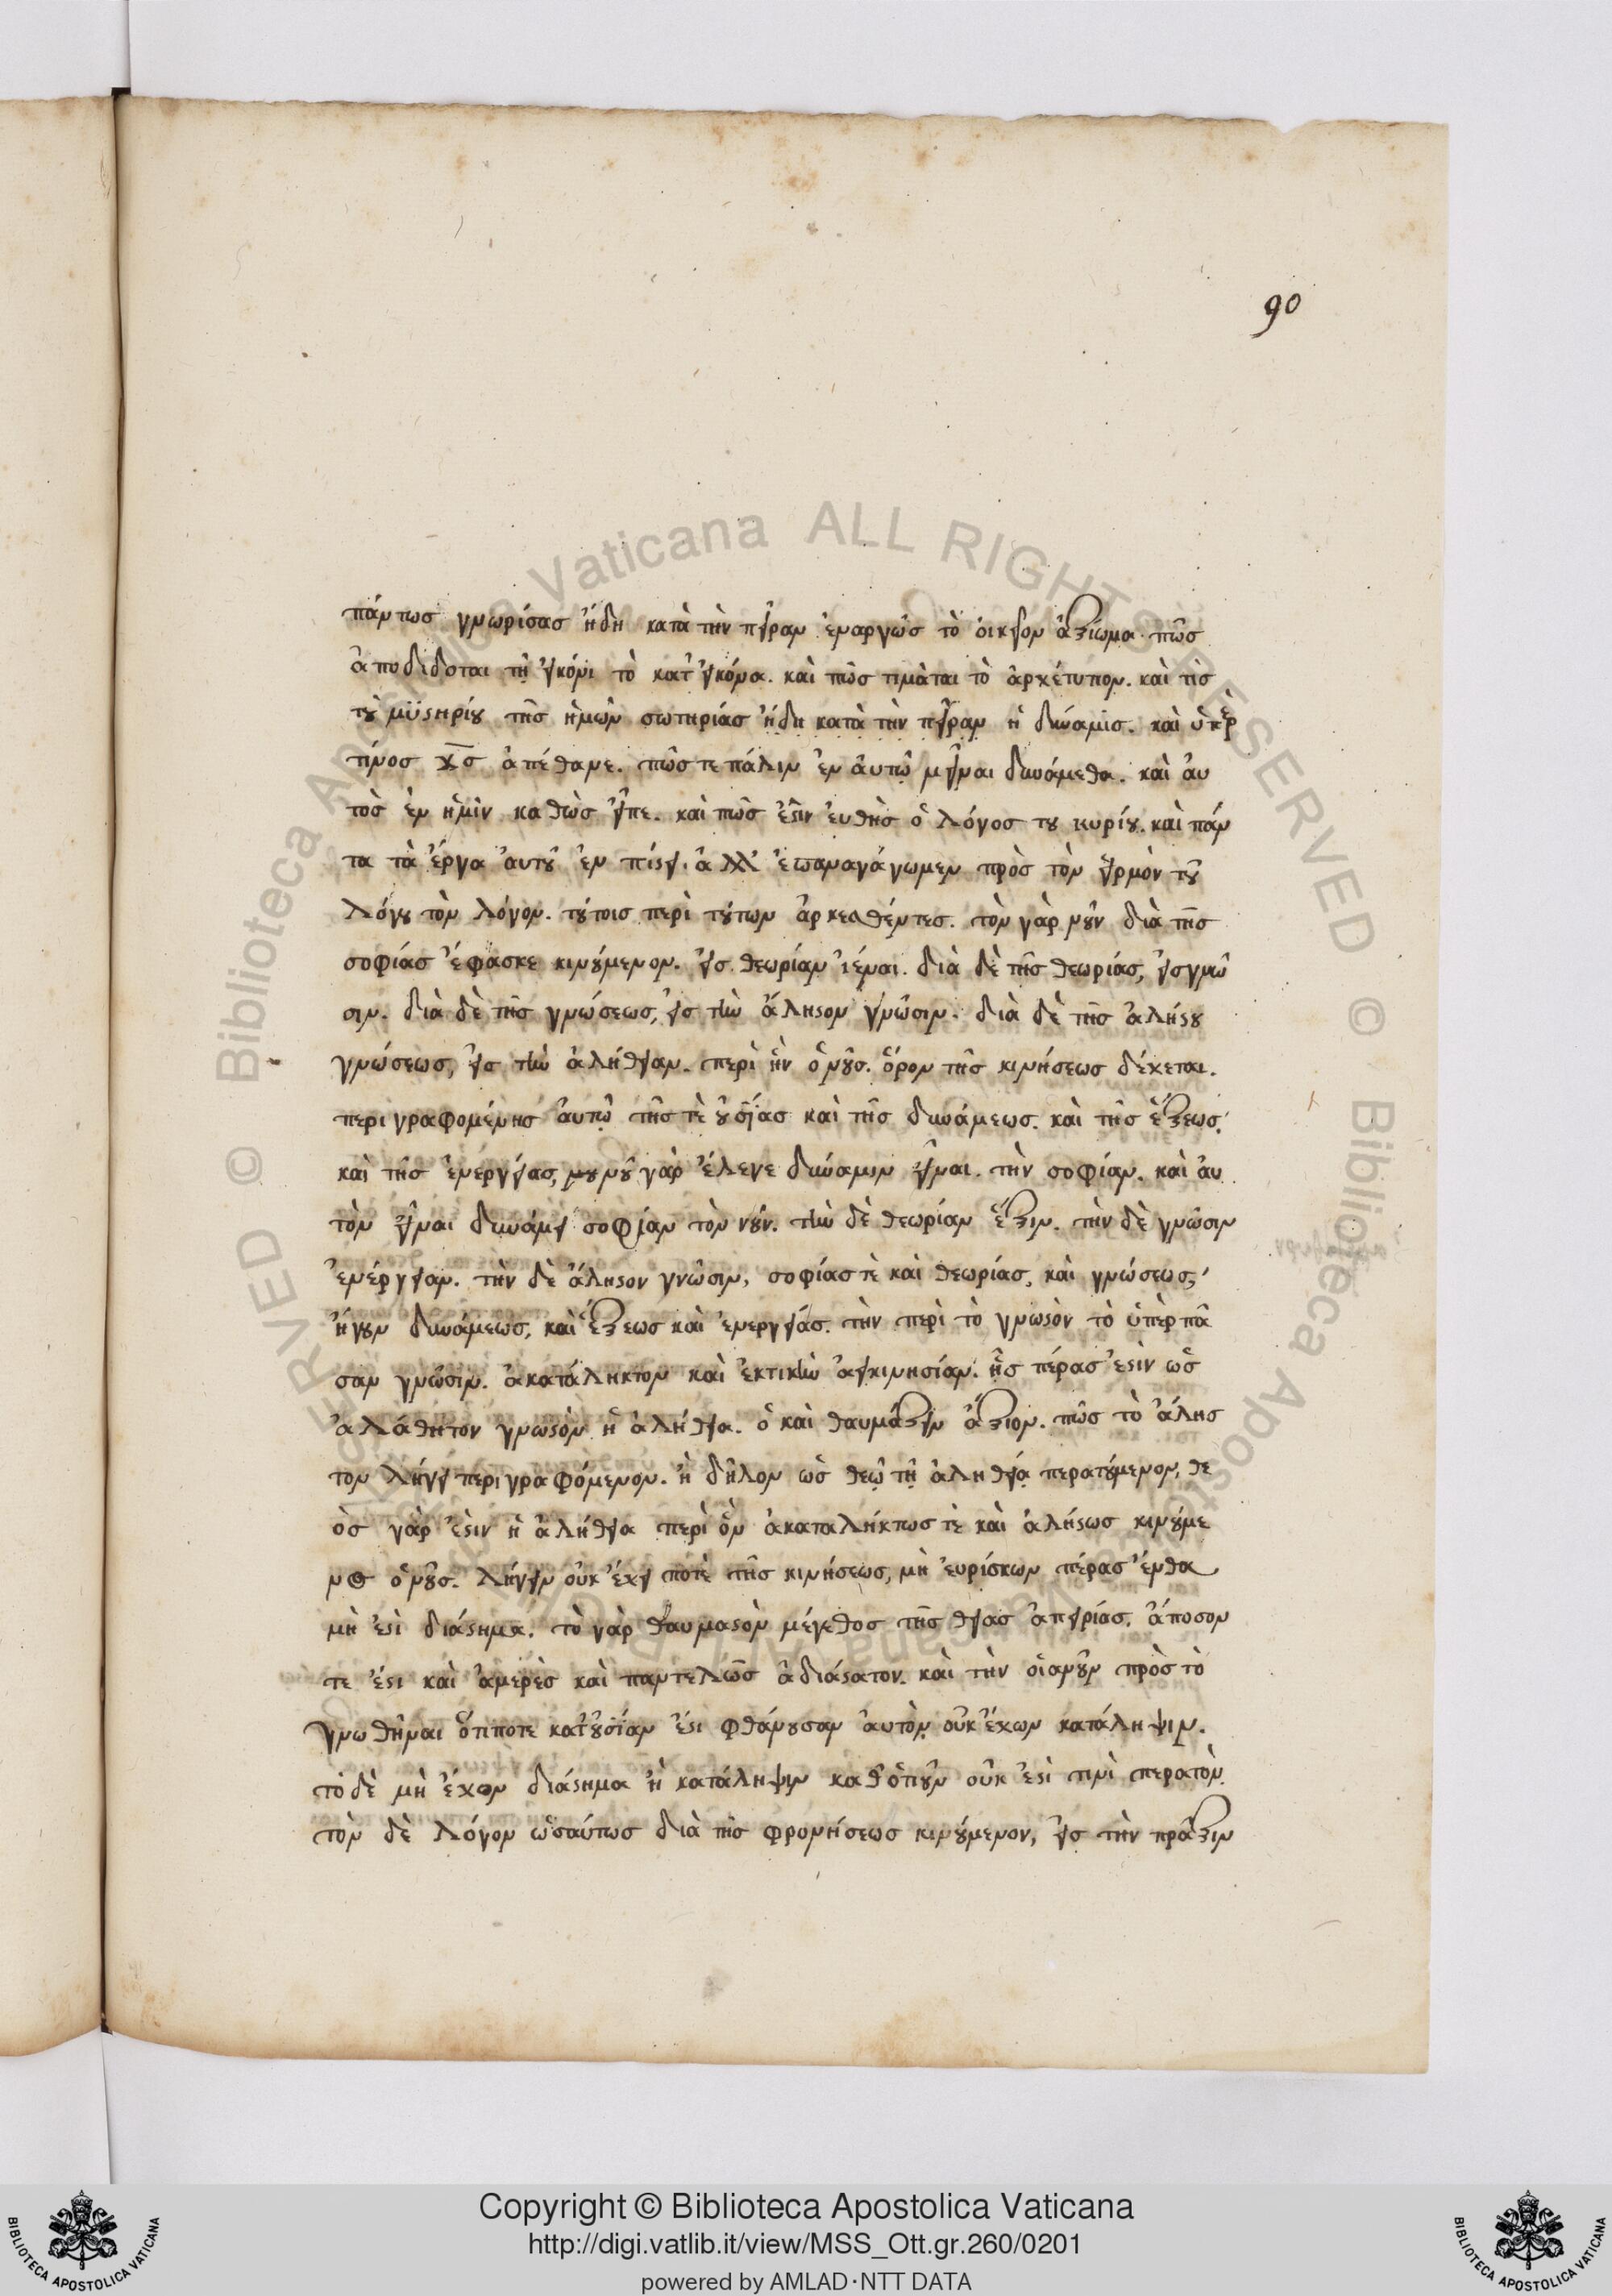 90
πάντως γνωρίσας ἤδη κατὰ τὴν πεῖραν ἐναργῶς τὸ οἰκεῖον ἀξίωμα. πῶς
ἀποδίδοται τῇ εἰκόνι τὸ κατ' εἰκόνα. καὶ πῶς τιμᾶται τὸ ἀρχέτυπον. καὶ τίς
τοῦ μϋστηρίου τῆς ἡμῶν σωτηρίας ἤδη κατὰ τὴν πεῖραν ἡ δύναμις. καὶ ὑπὲρ
τίνος χς ἀπέθανε. πῶς τε πάλιν ἐν αὐτῷ μεῖναι δυνάμεθα. καὶ αὐ
τὸς ἐν ἡμῖν καθὼς εἶπε. καὶ πῶς ἐστὶν εὐθὴς ὁ λόγος του κυρίου. καὶ πάν
τα τὰ ἔργα αὐτοῦ ἐν πίστει. ἀλλ' ἐπαναγάγωμεν πρὸς τὸν εἱρμὸν τοῦ
λόγου τὸν λόγον. τούτοις περὶ τούτων ἀρκεσθέντες. τὸν γὰρ νοῦν διὰ τῆς
σοφίας ἔφασκε κινούμενον. εἰς θεωρίαν ἰέναι. διὰ δὲ τῆς θεωρίας, εἰς γνῶ
σιν. διὰ δὲ τῆς γνώσεως, εἰς τὴν ἄληστον γνῶσιν. διὰ δὲ τῆς ἀλήστου
γνώσεως, εἰς τὴν ἀλήθειαν. περὶ ἣν ὁ νοῦς. ὅρον τῆς κινήσεως δέχεται.
περιγραφομένης αὐτῷ τῆς τὲ οὐσίας καὶ τῆς δυνάμεως. καὶ τῆς ἕξεως.
καὶ τῆς ἐνεργείας, νου νοῦ γὰρ ἔλεγε δύναμιν εἶναι. τὴν σοφίαν. καὶ αὐ
τὸν εἶναι δυνάμει σοφίαν τὸν νοῦν. τὴν δὲ θεωρίαν ἕξιν. τὴν δὲ γνῶσιν
ἐνέργειαν. τὴν δὲ ἄληστον γνῶσιν, σοφίας τὲ καὶ θεωρίας, καὶ γνώσεως,
ἤγουν δυνάμεως, καὶ ἕξεως καὶ ἐνεργείας. τὴν περὶ τὸ γνωστὸν τὸ ὑπὲρ πᾶ
σαν γνῶσιν. ἀκατάληκτον καὶ ἑκτικὴν ἀεικινησίαν. ἧς πέρας ἐστὶν ὡς
ἀλάθητον γνωστὸν ἡ ἀλήθεια. ὃ καὶ θαυμάζειν ἄξιον. πῶς τὸ ἄλησ
τον λήγει περιγραφόμενον. ἢ δῆλον ὡς θεῷ τῇ ἀληθείᾳ περατούμενον, θε
ὸς γὰρ ἐστὶν ἡ ἀλήθεια περὶ ὃν ἀκαταλήκτως τὲ καὶ ἀλήστως κινούμε
νος ὁ νοῦς. λήγειν οὐκ ἔχει ποτὲ τῆς κινήσεως, μὴ εὑρίσκων πέρας ἔνθα
μὴ ἐστὶ διάστημα. τὸ γὰρ θαυμαστὸν μέγεθος τῆς θείας ἀπειρίας. ἄποσον
τε ἐστι καὶ ἀμερὲς καὶ παντελῶς ἀδιάστατον. καὶ τὴν οἱανοῦν πρὸς τὸ
γνωθῆναι ὅτιποτε κατ' οὐσίαν ἐστι φθάνουσαν αὐτὸν οὐκ ἔχων κατάληψιν.
τὸ δὲ μὴ ἔχων διάστημα ἢ κατάληψιν καθ' ὁτιοῦν οὐκ ἐστὶ τινὶ περατὸν.
τὸν δὲ λόγον ὡσαύτως διὰ τῆς φρονήσεως κινούμενον, εἰς τὴν πρᾶξιν
Copyright © Biblioteca Apostolica Vaticana
http://digi.vatlib.it/view/MSS_Ott.gr.260/0201
powered by AMLAD·NTT DATA